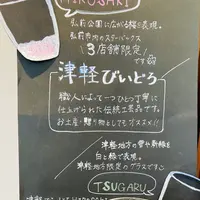 HIROSAKI
弘前公園に広がる桜を表現。
弘前市内のスターバックス
3店舗限定!
です
津軽びいどろ
職人によって一つひとつ丁寧に
仕上げられた伝統工芸品です。
お土産・贈り物としてもオススメ!!
津軽地方の雪や新緑を
白と緑で表現。
津軽地方限定のグラスです
TSUGARU